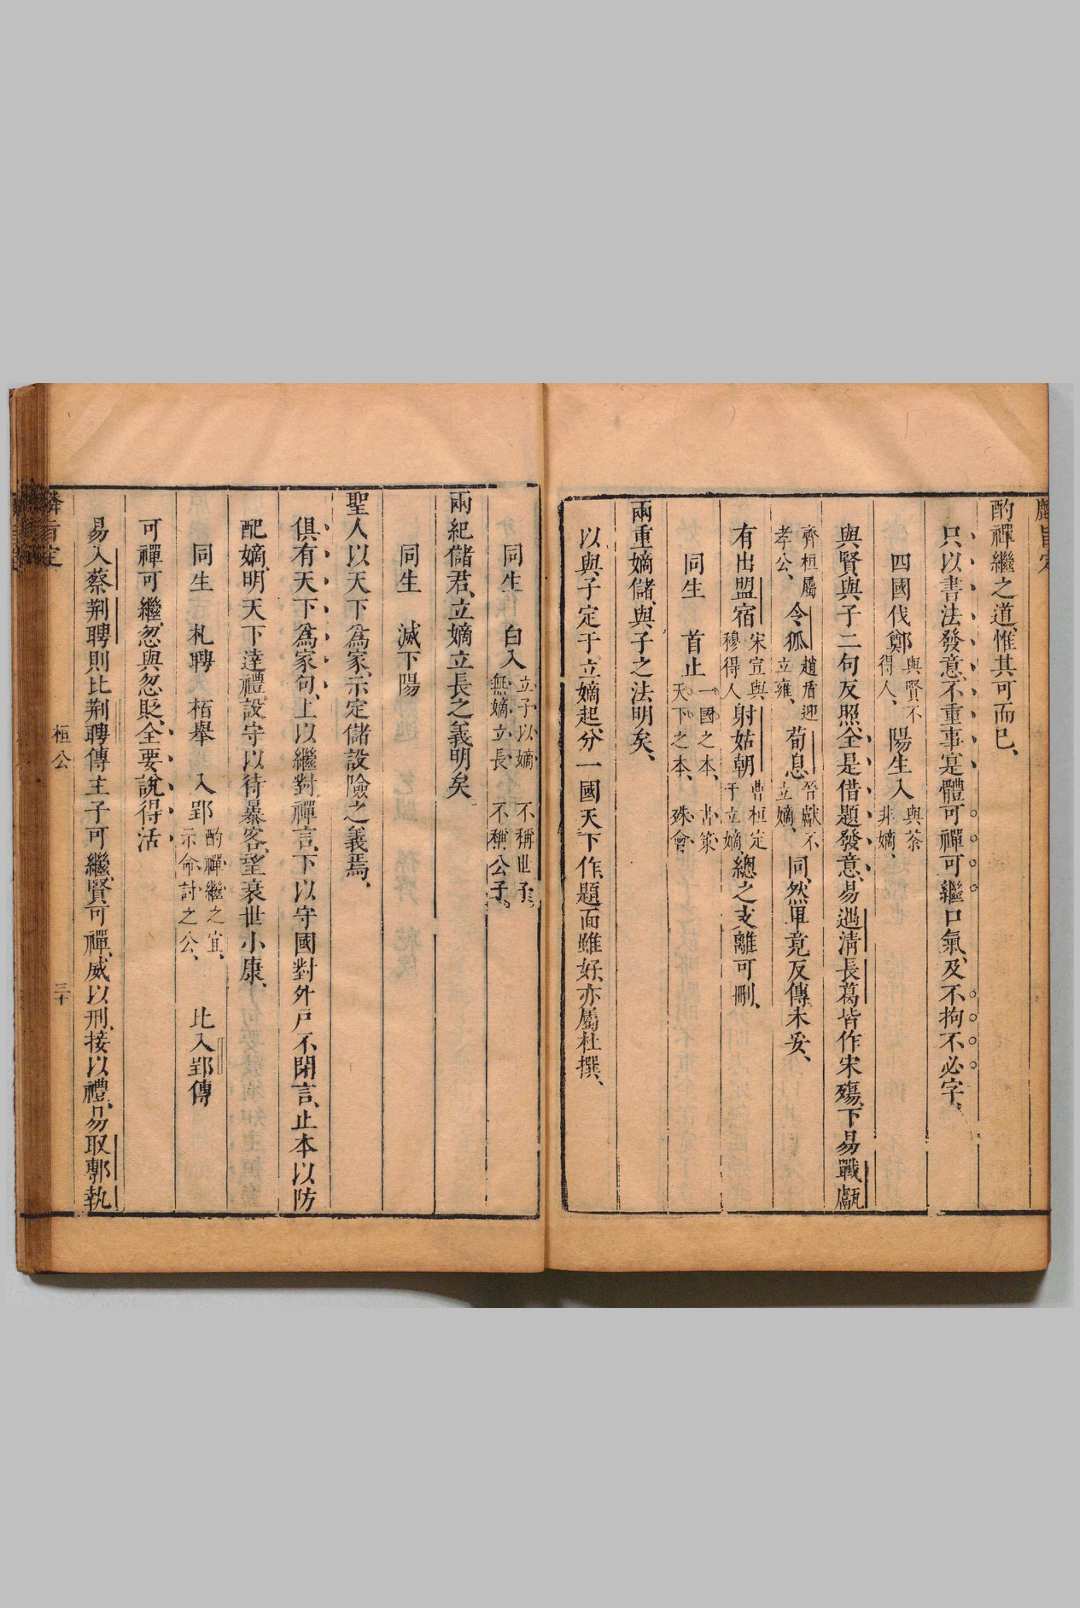 酌禪繼之道惟其可而已、
只以書法發意、不重事寔、體可禪可繼口氣、及不拘不必字、
四國伐鄭 與賢不得人、 陽生入 與荼非嫡、
與賢與子二句反照、全是借題發意、易遇淸長葛皆作宋殤、下易戰甗
齊桓屬孝公、 令狐 趙盾迎立雍、 荀息 晉獻不立嫡、 同、然單竟反傳未妥、
有出盟宿 宋宣與穆得人、 射姑朝 曹桓定于立嫡、 總之支離可刪、
同生 首止 一國之本、天下之本、 書策 殊會
兩重嫡儲、與子之法明矣、
以與子定于立嫡起、分一國天下作、題面雖好、亦屬杜撰、
同生 白入 立子以嫡、無嫡立長、 不稱世子、不稱公子、
兩紀儲君、立嫡立長之義明矣
同生 滅下陽
聖人以天下為家、示定儲設險之義焉、
俱有天下為家句、上以繼對禪言、下以守國對外戶不閉言、止本以防
配嫡、明天下達禮、設守以待暴客、望衰世小康、
同生 札聘 栢舉 入郢 酌禪繼之宜、示命討之公、 比入郢傳
可禪可繼、忽與忽貶、全要說得活
易入蔡荆聘則比荆聘傳主子可繼、賢可禪、威以刑、接以禮、易取鄆執
桓公
三十